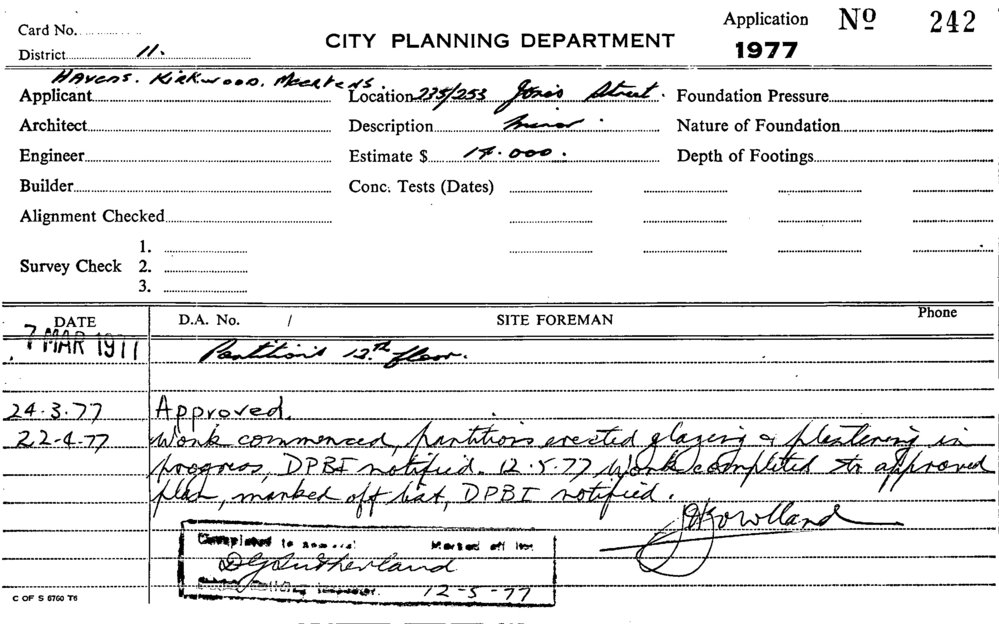 Card No.
Application Nº 242
CITY PLANNING DEPARTMENT
District 11.
1977
Havens. Kirkwood. Meertens.
Applicant
Location 235/253 Jones Street.
Foundation Pressure
Architect
Description Minor.
Nature of Foundation
Engineer
Estimate $ 14.000.
Depth of Footings
Builder
Conc. Tests (Dates)
Alignment Checked
1.
Survey Check 2.
3.
DATE D.A. No. / SITE FOREMAN Phone
7 MAR 1977 Partitions 12th floor.
24.3.77 Approved.
22-4-77 Work commenced, partitions erected glazing & plastering in
progress, DPBI notified. 12.5.77 Work completed to approved
plan, marked off list, DPBI notified.
Completed to Marked off list
DGSutherland
12-5-77
C OF S 6760 T6